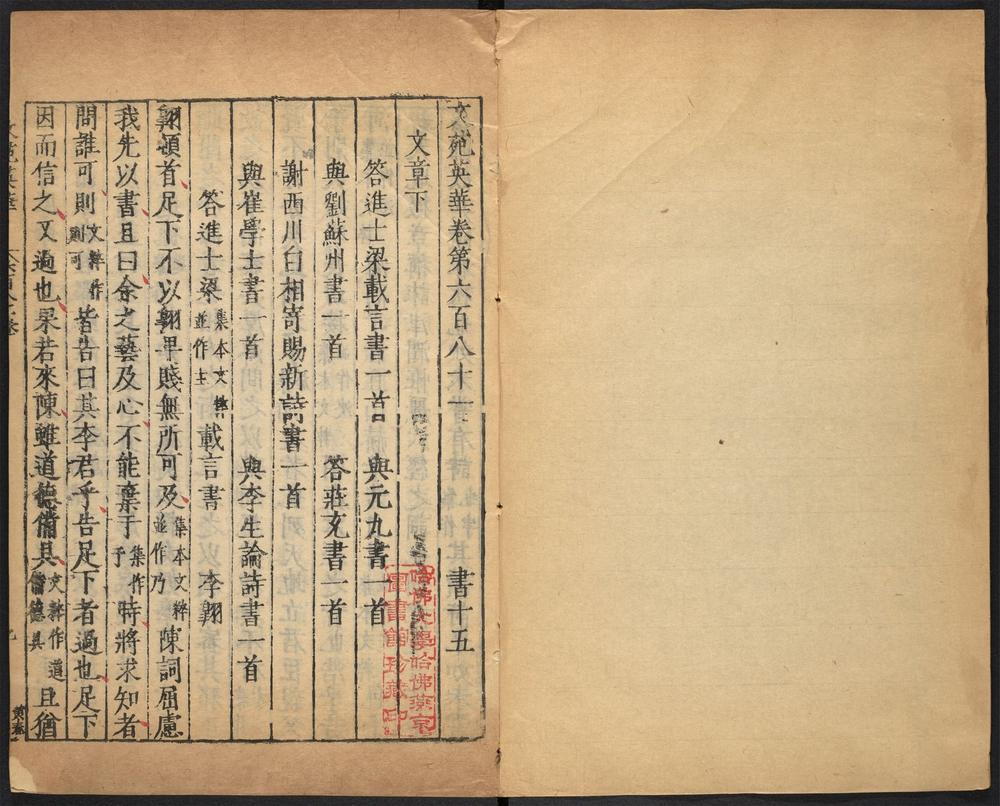 文苑英華卷第六百八十一 書十五
文章下
答進士梁載言書一首 與元九書一首
與劉蘇州書一首 答莊充書一首
謝西川白相寄賜新詩書一首
與崔學士書一首 與李生論詩書一首
答進士梁集本文粹並作王載言書 李翺
翺頓首足下不以翺卑賤無所可及集本文粹並作乃陳詞屈慮
我先以書且曰余之藝及心不能棄于集作予時將求知者
問誰可則文粹作則可皆告曰其李君乎告足下者過也足下
因而信之又過也果若來陳雖道德備具文粹作道備德具且猶
哈佛大學哈佛燕京
圖書館珍藏印